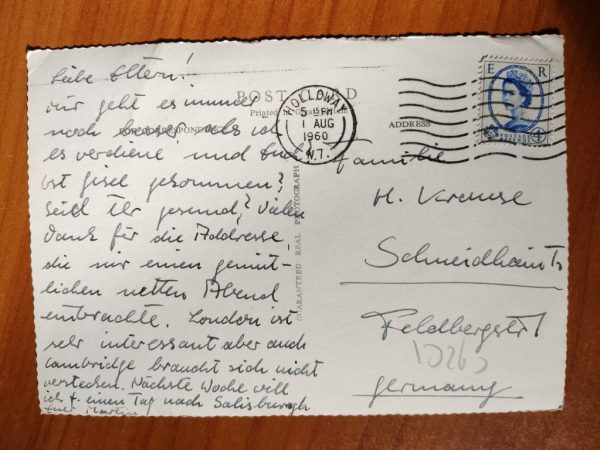 Liebe Eltern!
Mir geht es immer
noch besser als ich
es verdiene, und Euch?
ist Gisel gekommen?
Seid Ihr gesund? Vielen
Dank für die Addresse,
die mir einen gemüt-
lichen netten Abend
einbrachte. London ist
sehr interessant aber auch
Cambridge braucht sich nicht
verstecken. Nächste Woche will
ich f. einen Tag nach Salisburgh
Euer Martin
POST CARD
Printed in Great Britain
FOR CORRESPONDENCE
ADDRESS
GUARANTEED REAL PHOTOGRAPH
HOLLOWAY
5 15 PM
1 AUG
1960
N.7.
E R
POSTAGE
REVENUE
4D
Familie
H. Krause
Schneidhain Ts
Feldbergstr 1
Germany